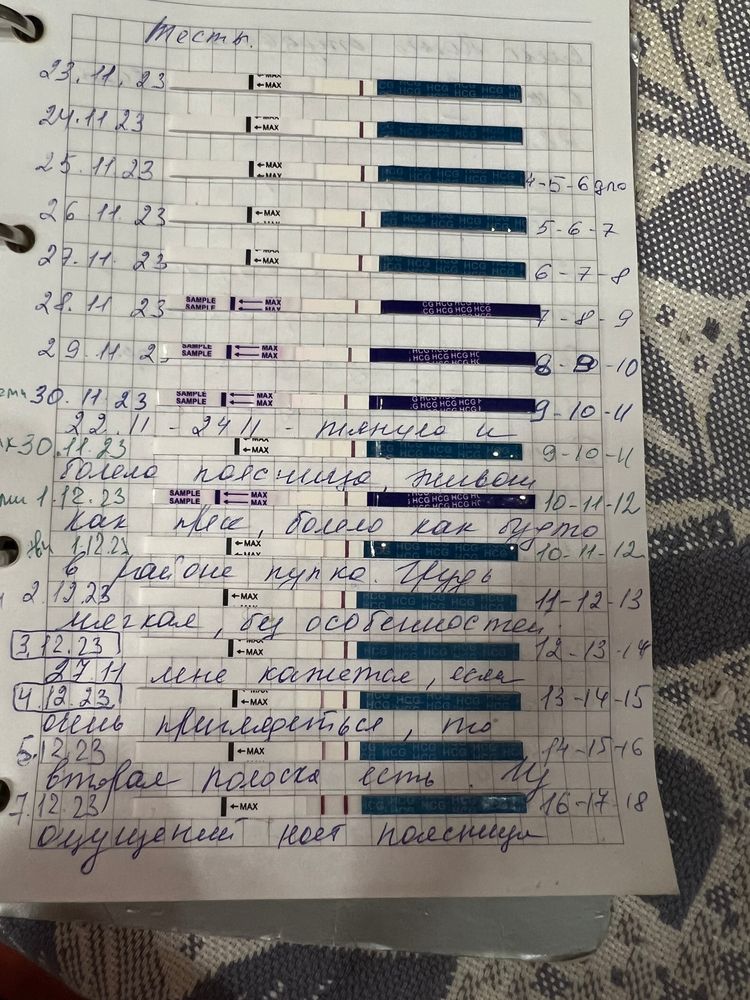 Тесты.
23.11.23 ←MAX HCG HCG HCG
24.11.23 ←MAX HCG HCG HCG
25.11.23 ←MAX HCG HCG HCG 4-5-6 дпо
26.11.23 ←MAX HCG HCG HCG 5-6-7
27.11.23 ←MAX HCG HCG HCG 6-7-8
28.11.23 SAMPLE SAMPLE MAX MAX CG HCG HCG HCG HCG HCG HCG 7-8-9
29.11.2 SAMPLE SAMPLE MAX MAX HCG HCG HCG HCG HCG HCG 8-9-10
30.11.23 SAMPLE SAMPLE MAX MAX HCG HCG HCG HCG HCG HCG 9-10-11
22.11-24.11 - тянуло и
30.11.23 ←MAX HCG HCG HCG 9-10-11
болела поясница, живот
1.12.23 SAMPLE SAMPLE MAX MAX HCG HCG HCG HCG HCG HCG 10-11-12
как пресс, болело как будто
1.12.23 ←MAX HCG HCG HCG 10-11-12
в районе пупка. Грудь
2.12.23 ←MAX HCG HCG HCG 11-12-13
мягкая, без особенностей.
3.12.23 ←MAX HCG HCG HCG 12-13-14
27.11 мне кажется, если
4.12.23 ←MAX HCG HCG HCG 13-14-15
очень приглядеться, то
5.12.23 ←MAX HCG HCG HCG 14-15-16
вторая полоска есть. Из
7.12.23 ←MAX HCG HCG HCG 16-17-18
ощущений ноет поясница